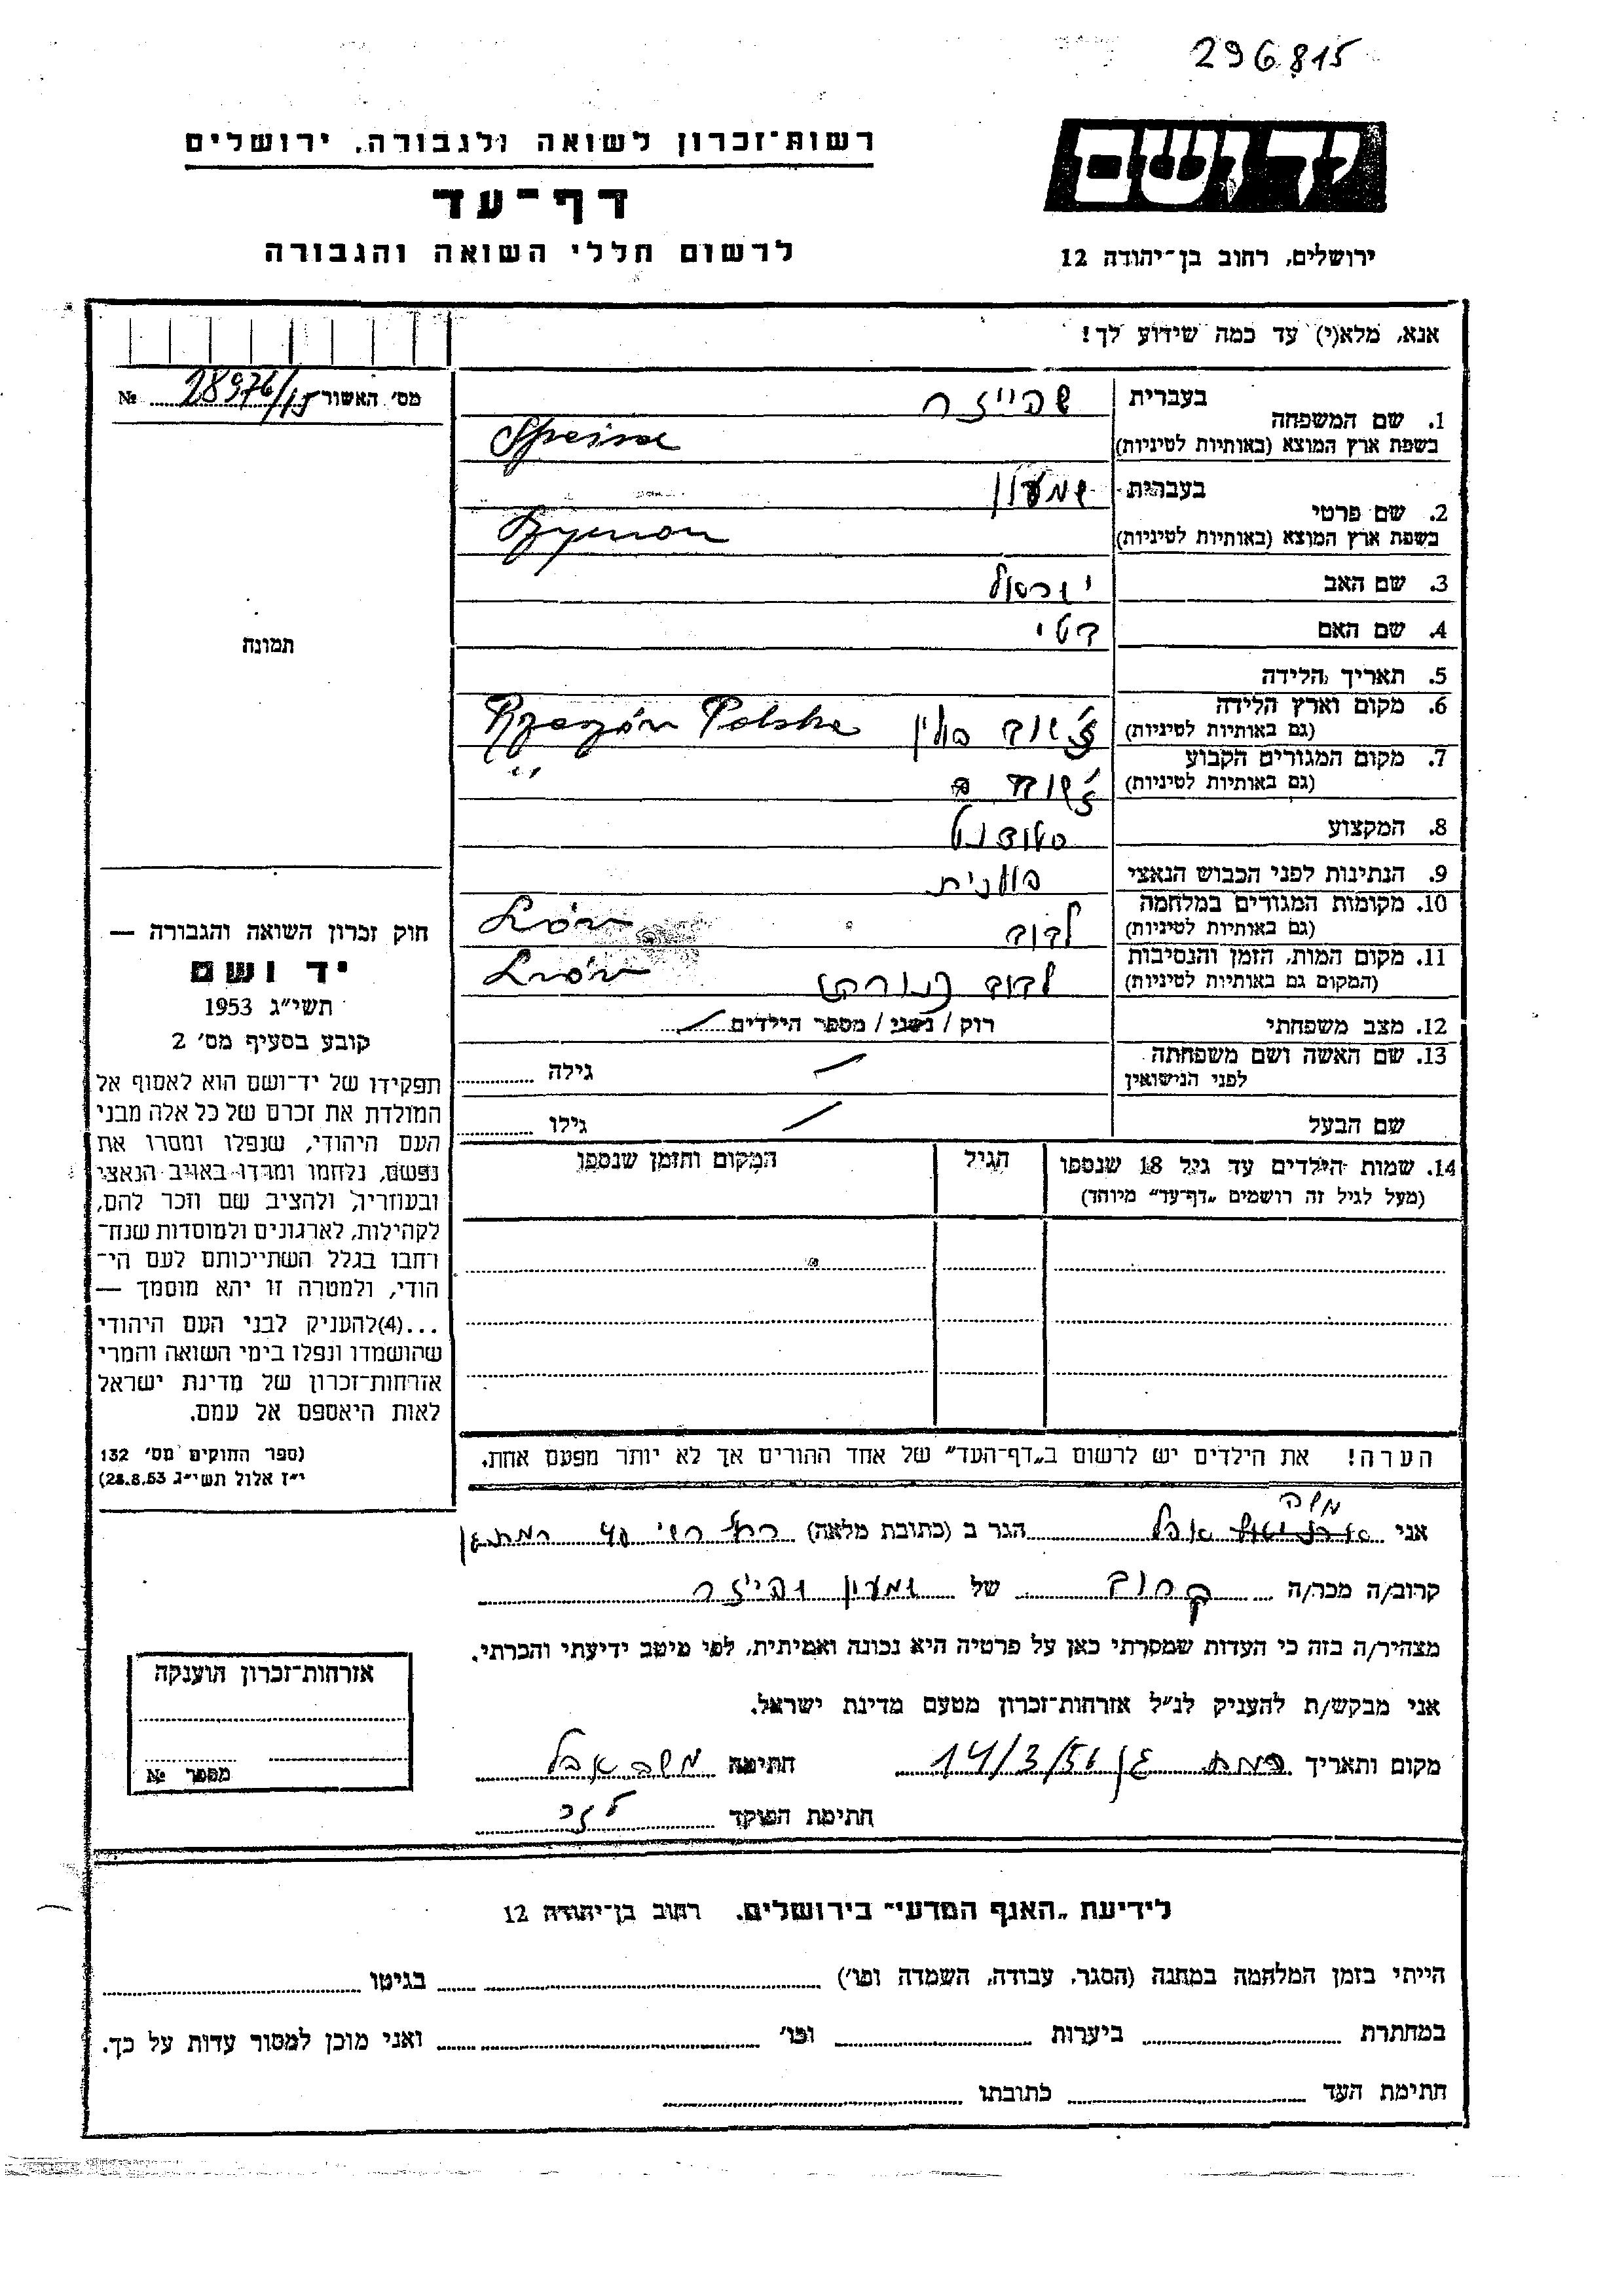 296815
רשות־זכרון לשואה ולגבורה, ירושלים
דף־עד
לרשום חללי השואה והגבורה
יד ושם
ירושלים, רחוב בן־יהודה 12
אנא, מלא(י) עד כמה שידוע לך!
מס׳ האשור 28976/15 №
תמונה
1. שם המשפחה בעברית שפייזר
בשפת ארץ המוצא (באותיות לטיניות)
2. שם פרטי בעברית שמעון
בשפת ארץ המוצא (באותיות לטיניות) Szymon
3. שם האב ישראל
4. שם האם
5. תאריך הלידה
6. מקום וארץ הלידה (גם באותיות לטיניות) פולין Polska
7. מקום המגורים הקבוע (גם באותיות לטיניות)
8. המקצוע סטודנט
9. הנתינות לפני הכבוש הנאצי פולנית
10. מקומות המגורים במלחמה (גם באותיות לטיניות) לבוב
11. מקום המות, הזמן והנסיבות (המקום גם באותיות לטיניות) לבוב
12. מצב משפחתי רוק / נשוי / מספר הילדים
13. שם האשה ושם משפחתה לפני הנישואין גילה
שם הבעל גילו
14. שמות הילדים עד גיל 18 שנספו הגיל המקום והזמן שנספו
(מעל לגיל זה רושמים „דף־עד״ מיוחד)
חוק זכרון השואה והגבורה —
יד ושם
תשי״ג 1953
קובע בסעיף מס׳ 2
תפקידו של יד־ושם הוא לאסוף אל
המולדת את זכרם של כל אלה מבני
העם היהודי, שנפלו ומסרו את
נפשם, נלחמו ומרדו באויב הנאצי
ובעוזריו, ולהציב שם וזכר להם,
לקהילות, לארגונים ולמוסדות שנח־
רחבו בגלל השתייכותם לעם הי־
הודי, ולמטרה זו יהא מוסמך —
...(4)להעניק לבני העם היהודי
שהושמדו ונפלו בימי השואה והמרי
אזרחות־זכרון של מדינת ישראל
לאות היאספם אל עמם.
(ספר החוקים מס׳ 132
י״ז אלול תשי״ג 28.8.53)
הערה! את הילדים יש לרשום ב„דף־העד״ של אחד ההורים אך לא יותר מפעם אחת.
משה
אני אבל הגר ב (כתובת מלאה) רמת גן
קרוב/ה מכר/ה קרוב של שמעון שפייזר
מצהיר/ה בזה כי העדות שמסרתי כאן על פרטיה היא נכונה ואמיתית, לפי מיטב ידיעתי והכרתי.
אני מבקש/ת להעניק לנ״ל אזרחות־זכרון מטעם מדינת ישראל.
מקום ותאריך רמת גן 14/3/56 חתימה משה אבל
חתימת הפוקד
אזרחות־זכרון הוענקה
מספר №
לידיעת „האגף המדעי״ בירושלים. רחוב בן־יהודה 12
הייתי בזמן המלחמה במחנה (הסגר, עבודה, השמדה וכו׳) בגיטו
במחתרת ביערות וכו׳ ואני מוכן למסור עדות על כך.
חתימת העד כתובתו